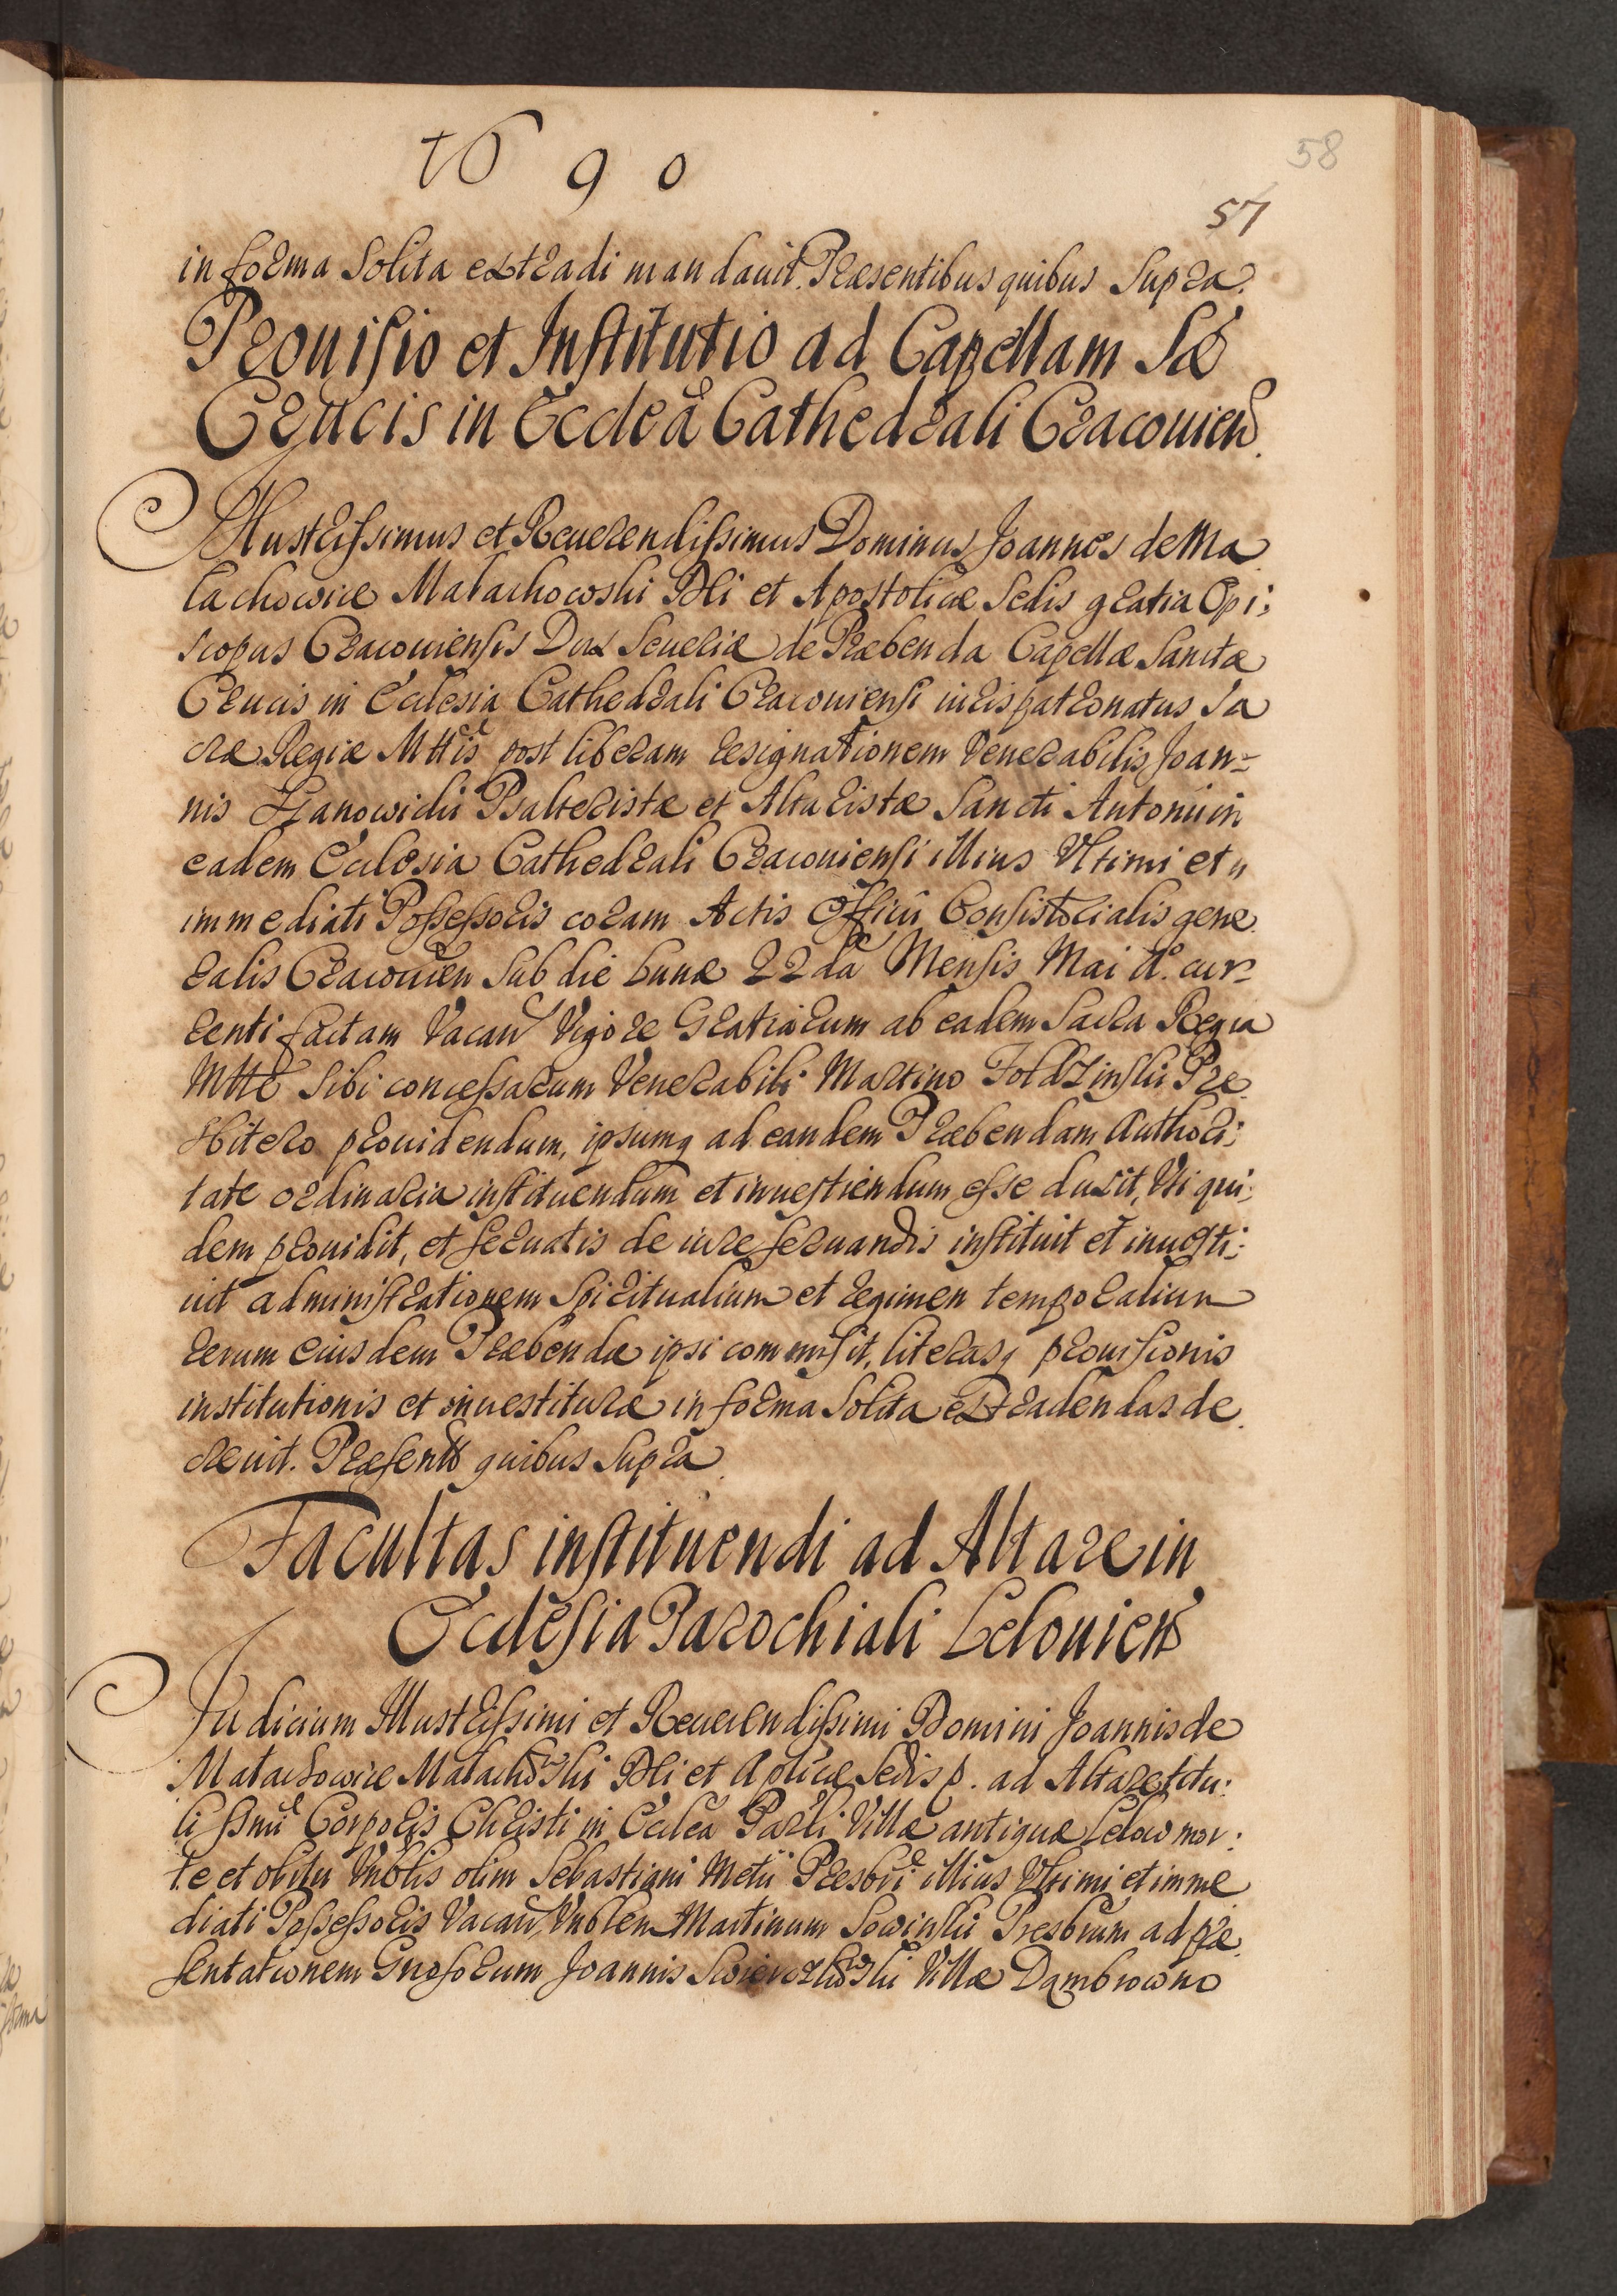 1690
58
57
in forma Solita extradi mandauit. Præsentibus quibus Supra.
Prouisio et Institutio ad Capellam Sæ
Crucis in Eccleā Cathedrali Cracouien.
Illustrissimus et Reuerendissimus Dominus Joannes de Ma
lachowice Malachowski Dei et Apostolicæ Sedis gratia Epi:
scopus Cracouiensis Dux Seueriæ de Præbenda Capellæ Sanctæ
Crucis in Ecclesia Cathedrali Cracouiensi iuris patronatus Sa
cræ Regiæ Mttis post liberam resignationem Venerabilis Joan=
nis Psalteristæ et Altaristæ Sancti Antonii in
eadem Ecclesia Cathedrali Cracouiensi illius Vltimi et
immediati Possessoris coram Actis Officii Consistorialis gene
ralis Cracouien Sub die Lunæ 22da Mensis Mai A. cur=
renti factam Vacan Vigore Gratiarum ab eadem Sacra Regia
Mtte Sibi concessarum Venerabili Martino Præ
sbitero prouidendum, ipsumq ad eandem Præbendam Authori:
tate ordinaria instituendum et inuestiendum esse duxit, Vti qui:
dem prouidit, et seruatis de iure seruandis instituit et inuesti:
uit administrationem Spiritualium et regimen temporalium
rerum eiusdem Præbendæ ipsi commisit, literasq prouisionis
institutionis et inuestituræ in forma Solita extradendas de
creuit. Præsentt quibus Supra
Facultas instituendi ad Altare in
Ecclesia Parochiali Lelouien
Judicium Illustrissimi et Reuerendissimi Domini Joannis de
Malachowice Malachowski Dei et Aplicæ Sedis p. ad Altare titu:
li Ssmi Corporis Christi in Ecclea Parli Villæ antiquæ Lelow mor:
te et obitu Vnblis olim Sebastiani Metii Presbri illius Vltimi et imme
diati Possessoris Vacan Vnblem Martinum Sowinski Presbrum ad præ
sentationem Gnosorum Joannis Villæ Dambrowno